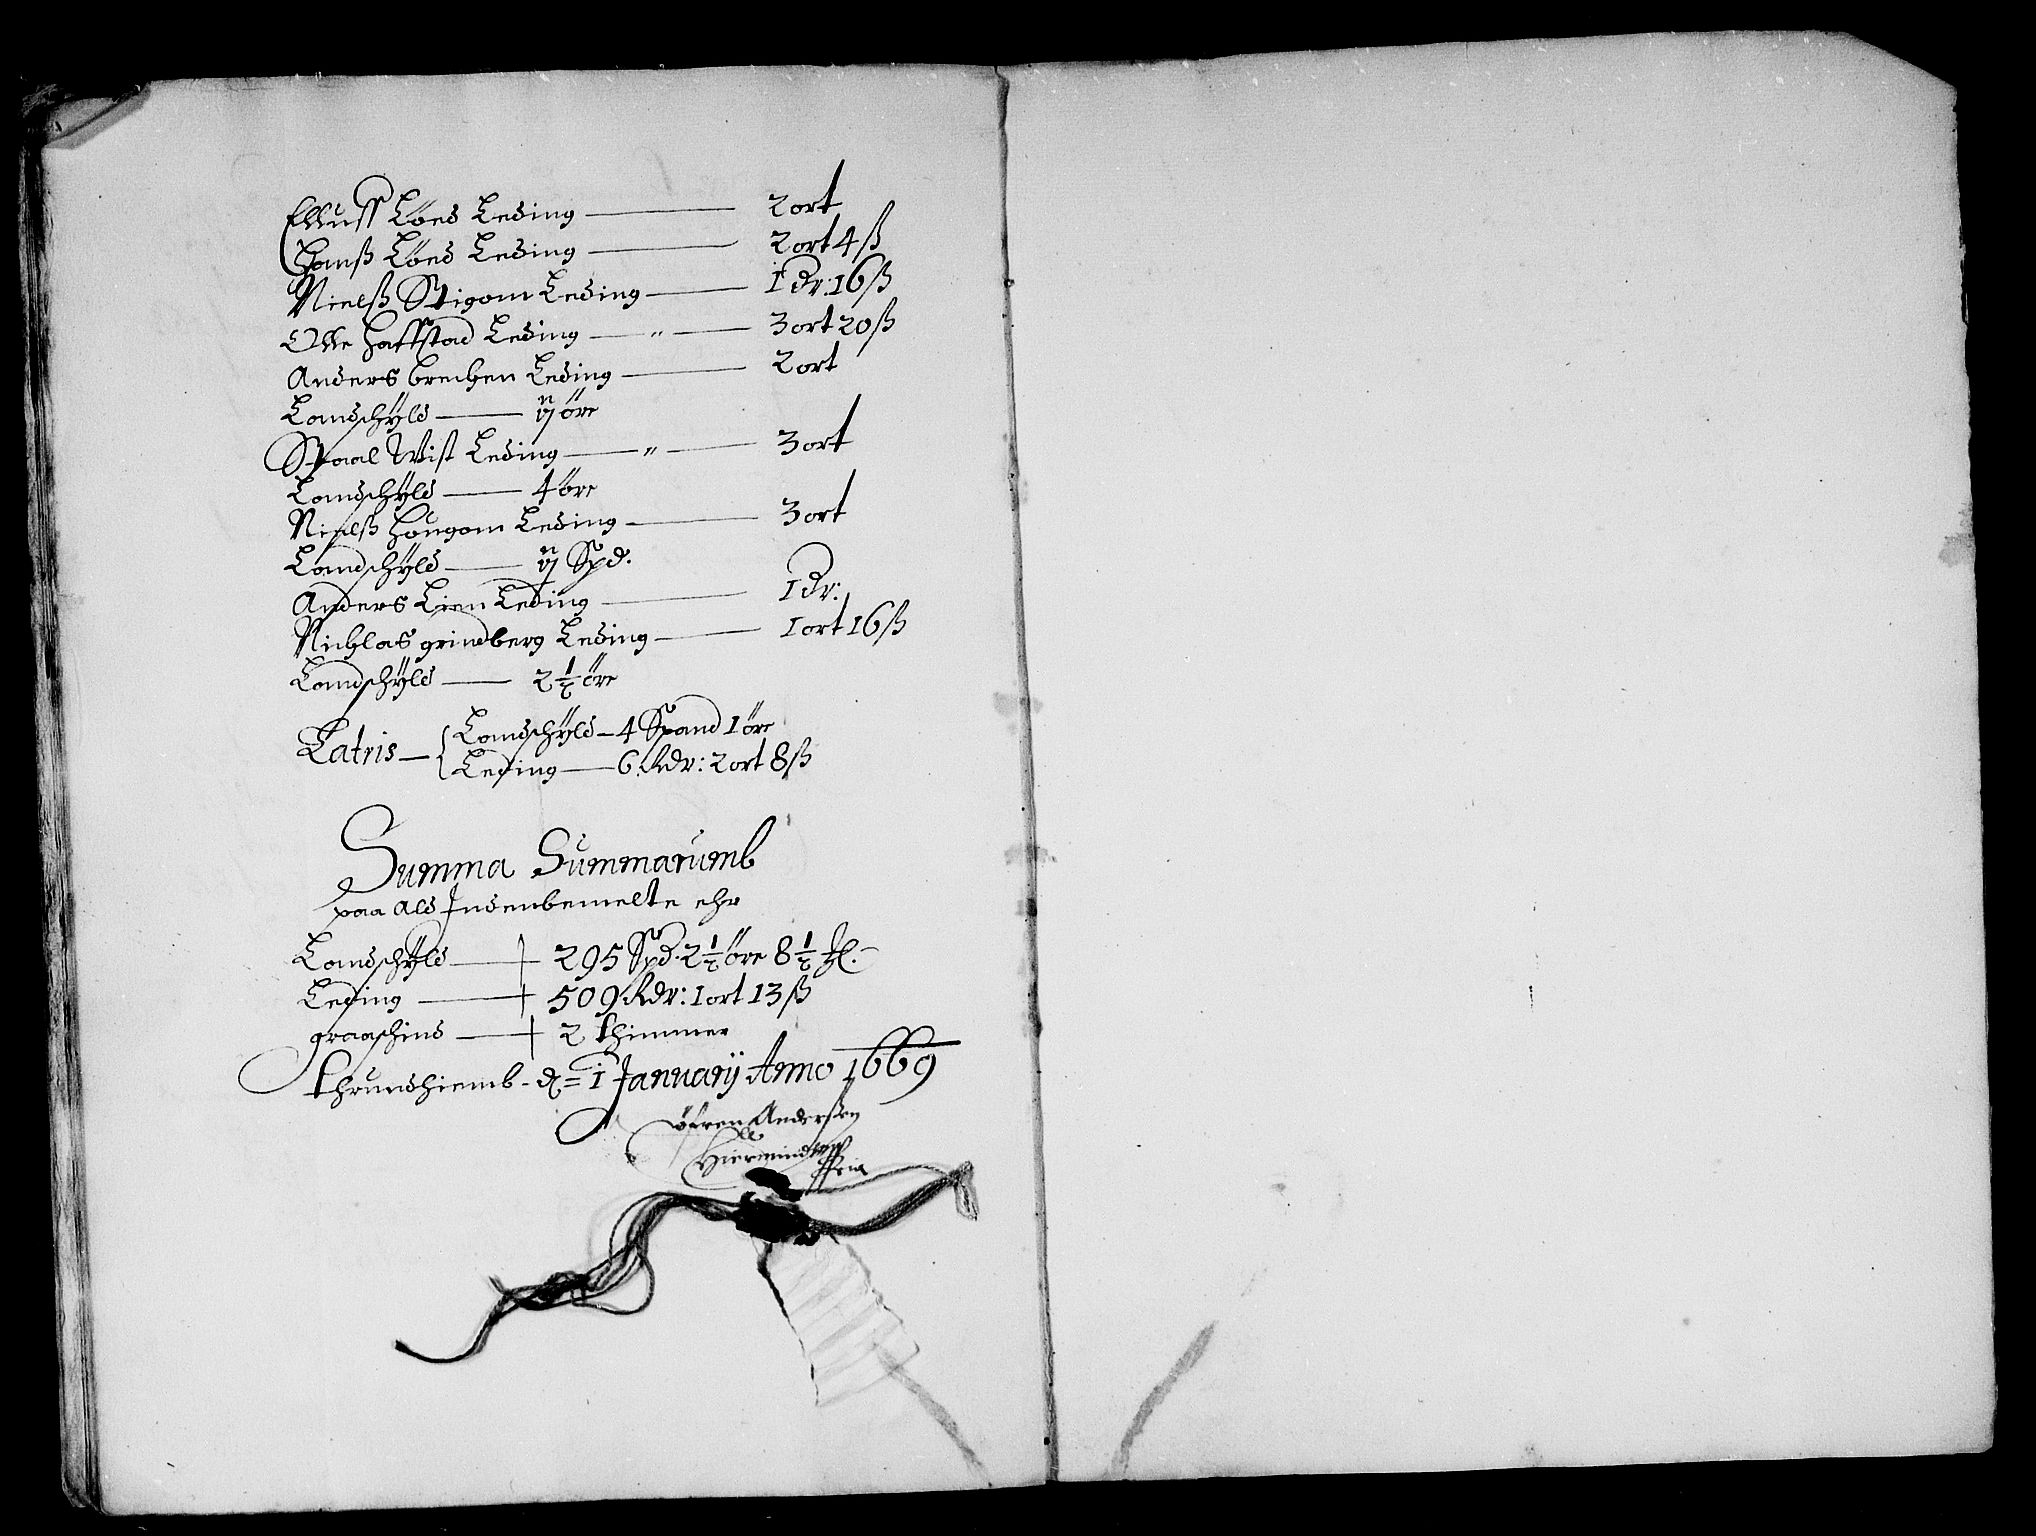 Elluff Löed Leding — 2 ort
Hanß Löed Leding — 2 ort 4 ß
Nielß Stigom Leding — 1 Dr: 16 ß
Olle Haffstad Leding — „ — 3 ort 20 ß
Anders brechen Leding — 2 ort
Landschÿld — öre
Paal Wist Leding — „ — 3 ort
Landschÿld — 4 öre
Nielß Hougom Leding — 3 ort
Landschÿld — Spd.
Anders Lien Leding — 1 Dr:
Nichlas grindberg Leding — 1 ort 16 ß
Landschÿld — 2 1/2 öre
Latris — Landschÿld — 4 Spand 1 öre
Leding — 6 Rdr: 2 ort 8 ß
Summa Summarumb
paa Ald Indenbemelte ehr
Landschÿld — 295 Spd. 2 1/2 öre 8 1/2
Leding — 509 Rdr: 1 ort 13 ß
graaschind — 2 thimmer
thrundhiemb - d = 1 Januarij Anno 1669
Andersen